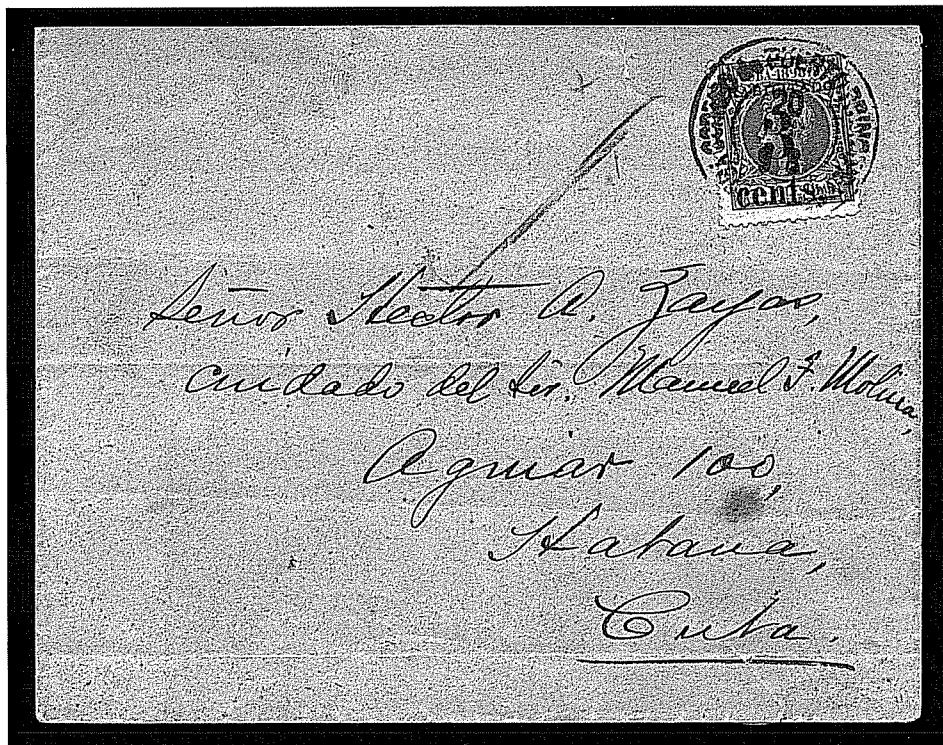 20
cents.
Señor Hector A. Zayas,
cuidado del Sr. Manuel F. Molina,
Aguiar 100,
Habana,
Cuba.